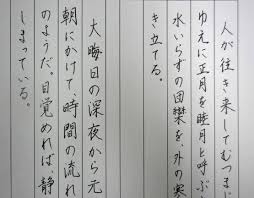 人が往き来してむつま
ゆえに正月を睦月と呼ぶ
水いらずの団欒を、外の寒
き立てる。
大晦日の深夜から元
朝にかけて、時間の流れ
のようだ。目覚めれば、静
しまっている。